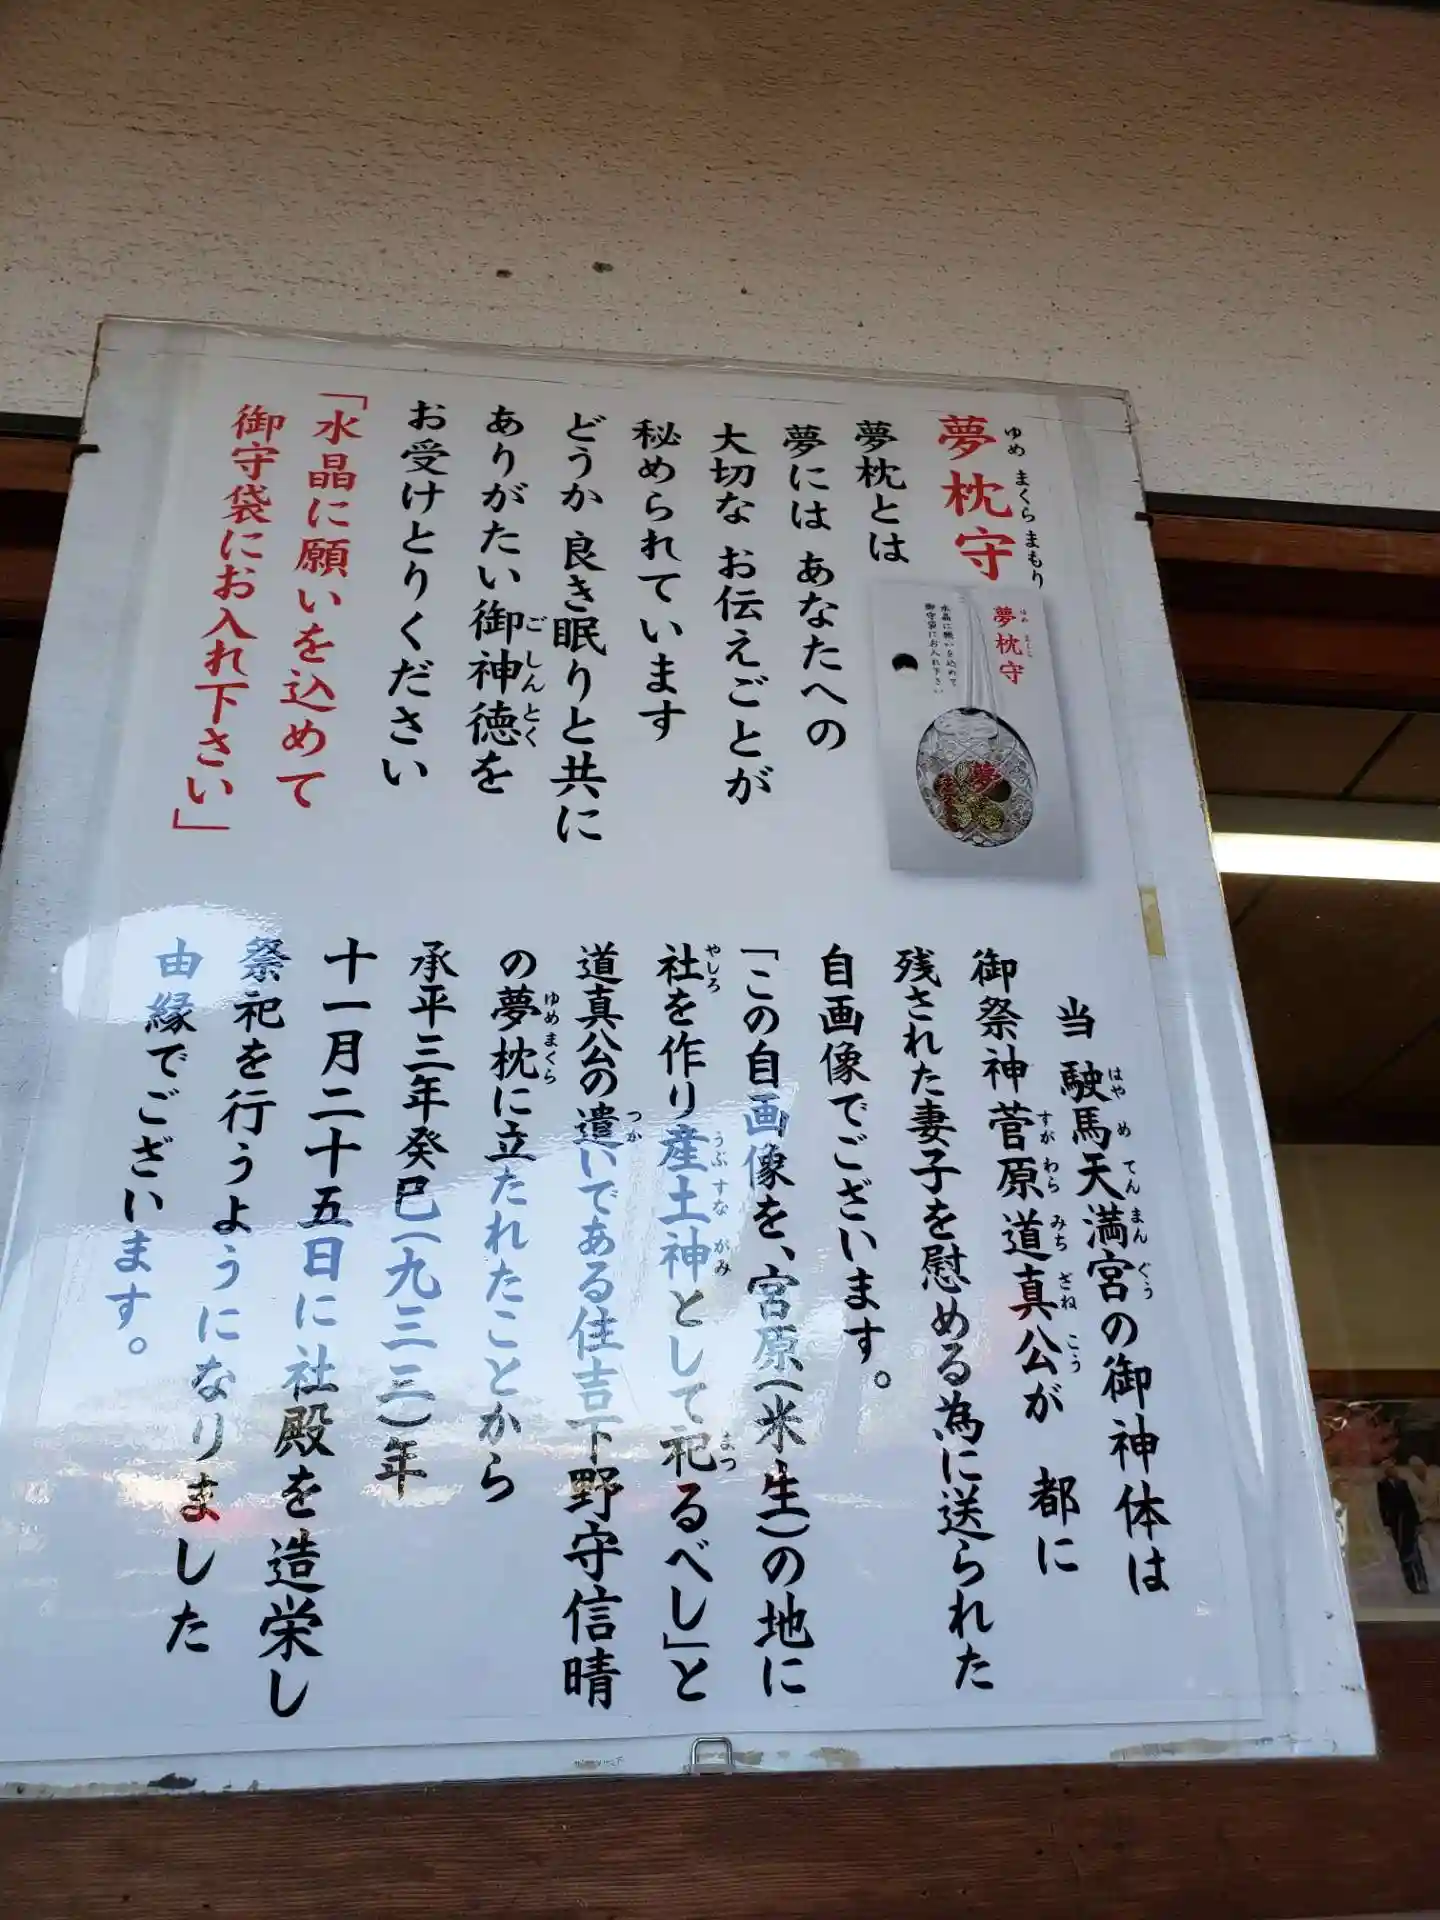 夢枕守
ゆめ まくら まもり
夢枕とは
夢には あなたへの
大切な お伝えごとが
秘められています
どうか 良き眠りと共に
ありがたい御神徳を
ごしんとく
お受けとりください
「水晶に願いを込めて
御守袋にお入れ下さい」
夢枕守
水晶に願いを込めて
御守袋にお入れ下さい
夢
当 駛馬天満宮の御神体は
はや め てん まん ぐう
御祭神 菅原 道真公が 都に
すが わら みち ざね こう
残された妻子を慰める為に送られた
自画像でございます。
「この自画像を、宮原(米生)の地に
社を作り産土神として祀るべし」と
やしろ うぶ すな がみ まつ
道真公の遣いである住吉下野守信晴
つか
の夢枕に立たれたことから
ゆめ まくら
承平三年癸巳(九三三)年
十一月二十五日に社殿を造栄し
祭祀を行うようになりました
由縁でございます。